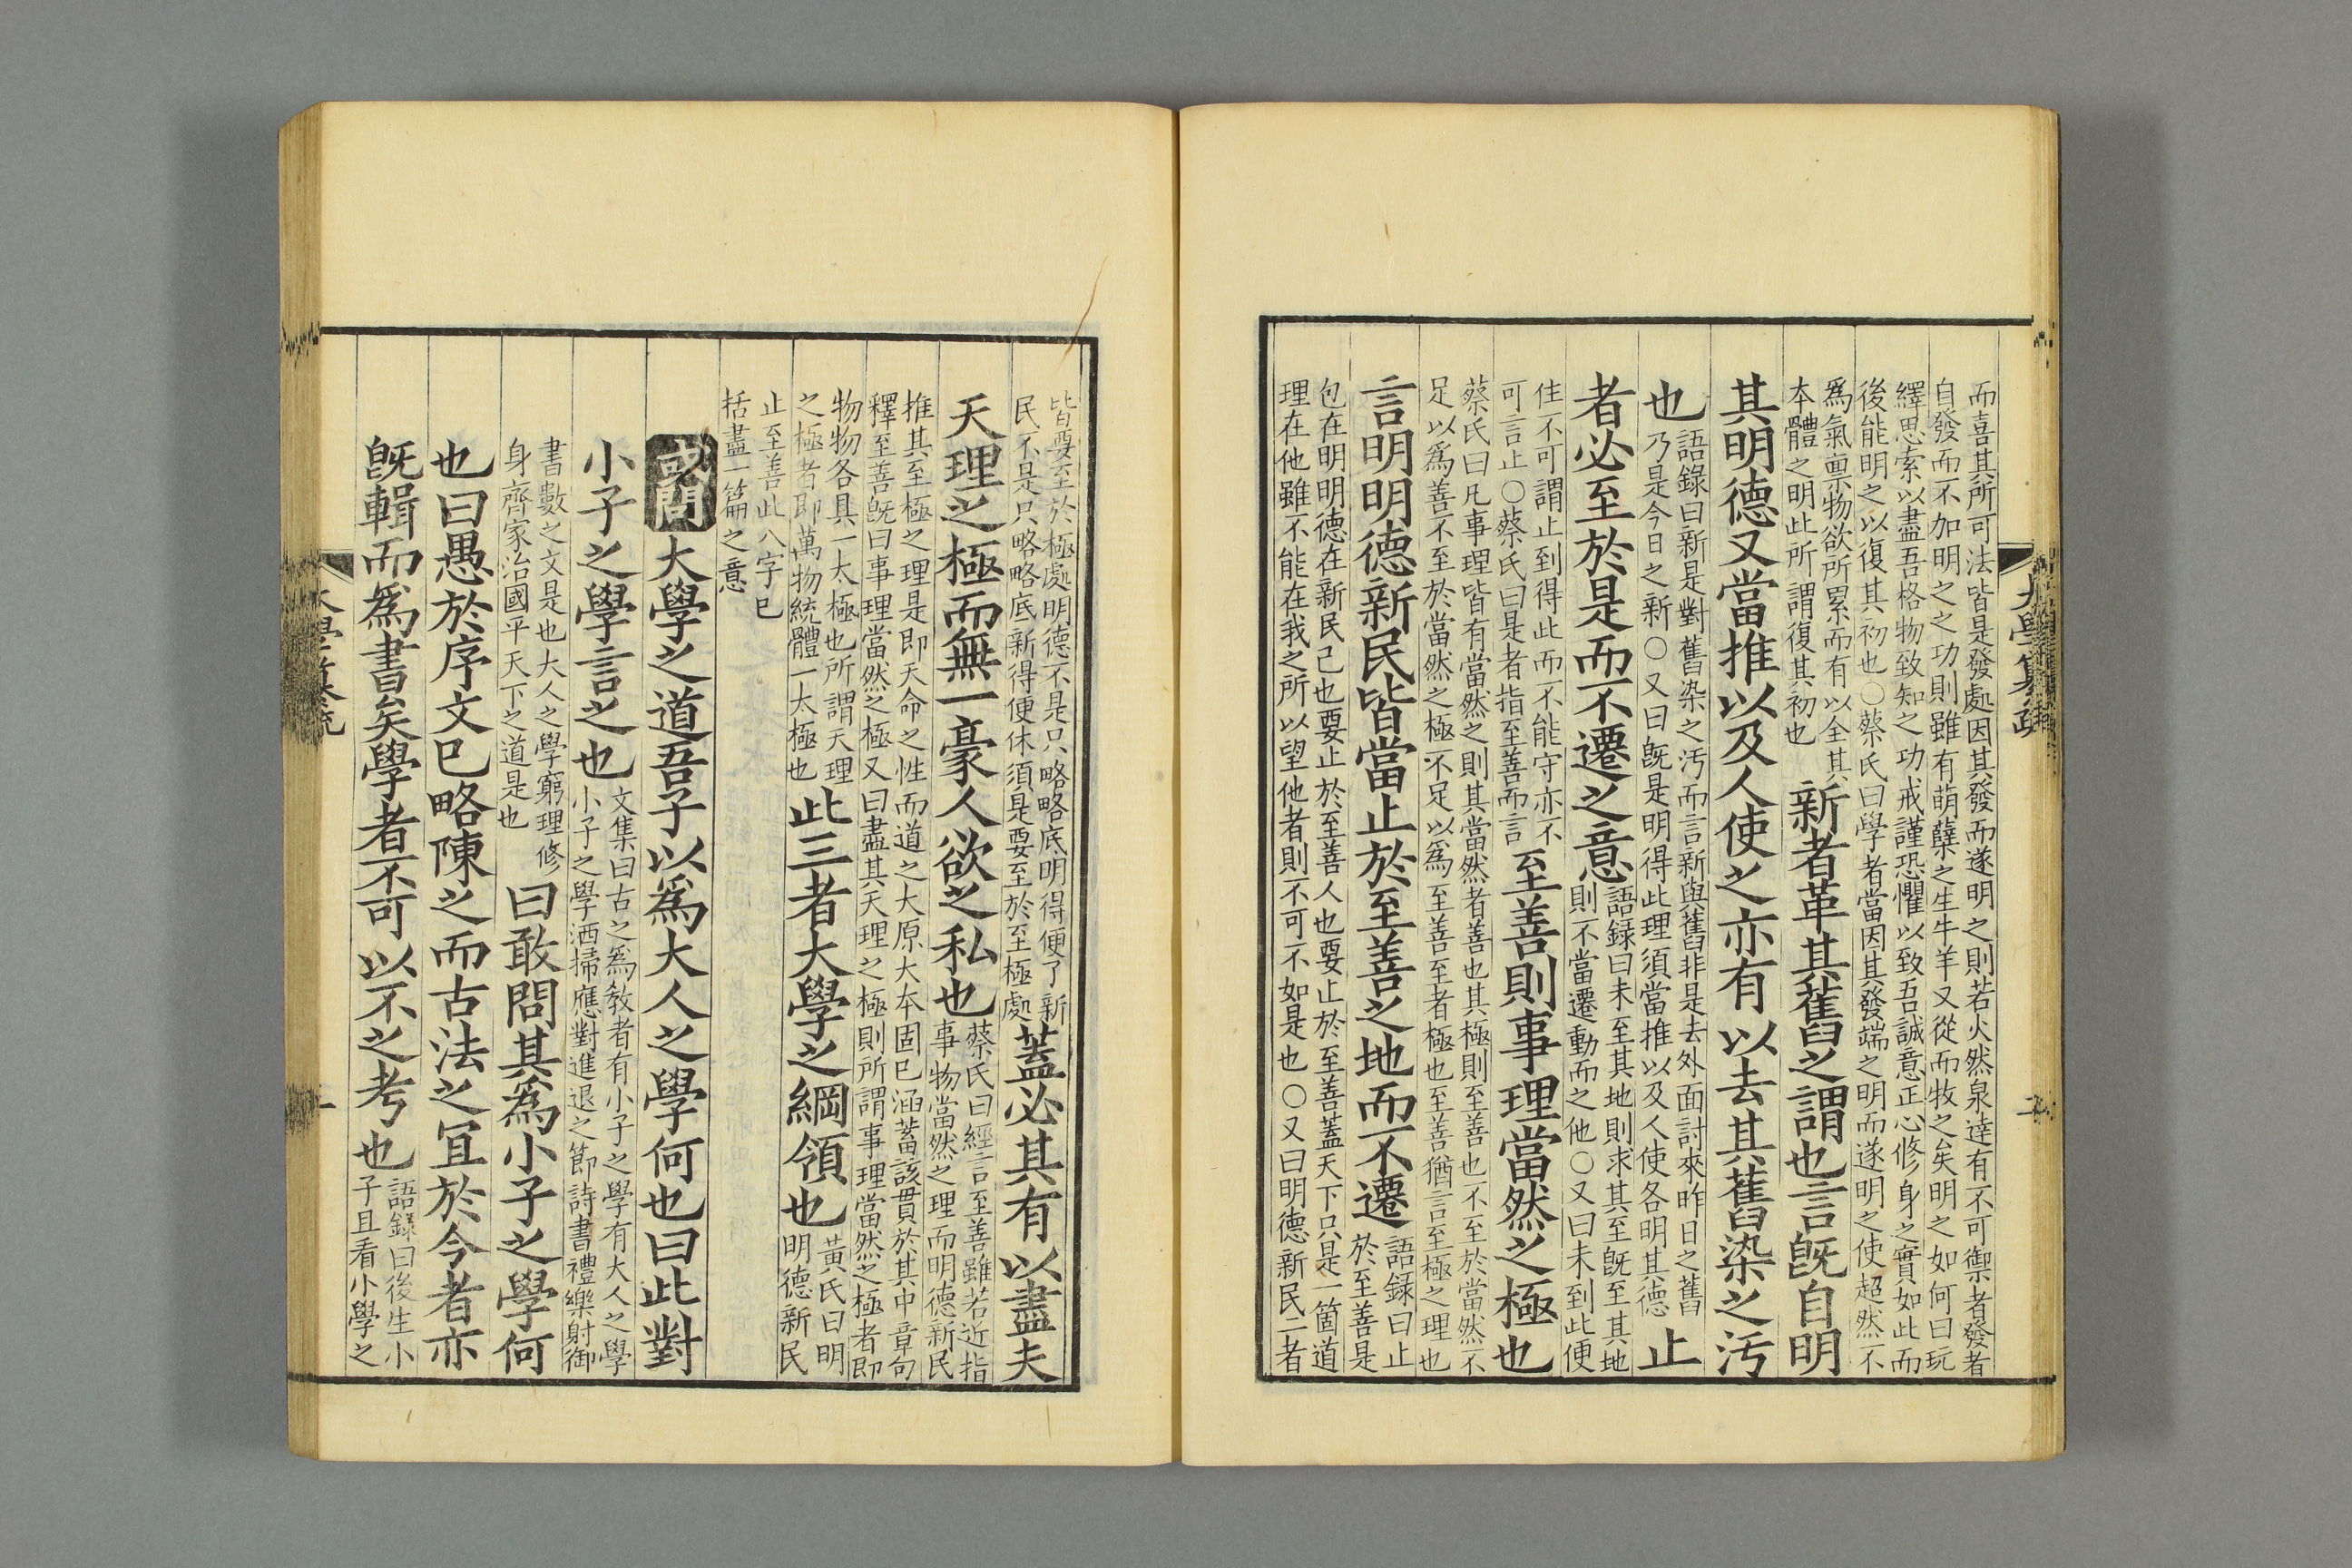 而喜其所可法皆是發處因其發而遂明之則若火然泉達有不可禦者發者
自發而不加明之之功則雖有萌蘖之生牛羊又從而牧之矣明之如何曰玩
繹思索以盡吾格物致知之功戒謹恐懼以致吾誠意正心修身之實如此而
後能明之以復其初也○蔡氏曰學者當因其發端之明而遂明之使超然不
爲氣禀物欲所累而有以全其
本體之明此所謂復其初也
新者革其舊之謂也言旣自明
其明德又當推以及人使之亦有以去其舊染之汚
也
語錄曰新是對舊染之汚而言新與舊非是去外面討來昨日之舊
乃是今日之新○又曰旣是明得此理須當推以及人使各明其德
止
者必至於是而不遷之意
語録曰未至其地則求其至旣至其地
則不當遷動而之他○又曰未到此便
住不可謂止到得此而不能守亦不
可言止○蔡氏曰是者指至善而言
至善則事理當然之極也
蔡氏曰凡事理皆有當然之則其當然者善也其極則至善也不至於當然不
足以爲善不至於當然之極不足以爲至善至者極也至善猶言至極之理也
言明明德新民皆當止於至善之地而不遷
語録曰止
於至善是
包在明明德在新民己也要止於至善人也要止於至善蓋天下只是一箇道
理在他雖不能在我之所以望他者則不可不如是也○又曰明德新民二者
大學纂疏
皆要至於極處明德不是只略略底明得便了新
民不是只略略底新得便休須是要至於至極處
蓋必其有以盡夫
天理之極而無一豪人欲之私也
蔡氏曰經言至善雖若近指
事物當然之理而明德新民
推其至極之理是即天命之性而道之大原大本固已涵蓄該貫於其中章句
釋至善旣曰事理當然之極又曰盡其天理之極則所謂事理當然之極者即
物物各具一太極也所謂天理
之極者即萬物統體一太極也
此三者大學之綱領也
黃氏曰明
明德新民
止至善此八字已
括盡一篇之意
或問
大學之道吾子以爲大人之學何也曰此對
小子之學言之也
文集曰古之爲教者有小子之學有大人之學
小子之學洒掃應對進退之節詩書禮樂射御
書數之文是也大人之學窮理修
身齊家治國平天下之道是也
曰敢問其爲小子之學何
也曰愚於序文已略陳之而古法之宜於今者亦
旣輯而爲書矣學者不可以不之考也
語錄曰後生小
子且看小學之
大學纂疏